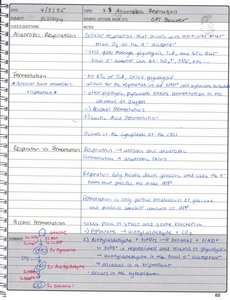 DATE 4/5/25 TOPIC 5.8 Anaerobic Respiration
SUBJECT Biology SOURCE: LECTURE, BOOK, ETC. DAT Booster
CUES/QUESTIONS NOTES
Anaerobic Respiration Cellular Respiration that occurs with molecules other
than O₂ as the e⁻ acceptor
Still goes through glycolysis, TCA, and ETC. But
final e⁻ acceptor can be SO₄²⁻, NO₃⁻, etc...
Fermentation No ETC or TCA, only glycolysis
different than anaerobic allows for the regeneration of NAD⁺ and
respiration
after glycolysis, pyruvate enters fermentation in the
absence of oxygen
1) Alcohol Fermentation
2) Lactic Acid Fermentation
Occurs in the cytoplasm of the cell
Respiration vs. Fermentation Respiration → aerobic and anaerobic
Fermentation → anaerobic only
Respiration fully breaks down glucose and uses the ETC
to make ATP
Fermentation is only partial breakdown of glucose
and produces smaller amount of ATP
Alcohol Fermentation Takes place in yeast and some bacteria
1) Pyruvate → acetylaldehyde + CO₂
SUMMARY 2) Acetylaldehyde + NADH → Ethanol + NAD⁺
NAD⁺ is regenerated and reused in glycolysis
acetylaldehyde is the final e⁻ acceptor
ethanol is a byproduct
occurs in the cytoplasm
65